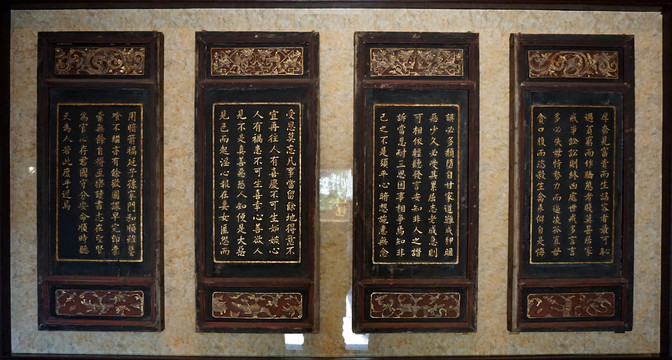 厚奩見富貴而生諂容者最可恥
遇貧窮而作驕態者賤莫甚居家
戒爭訟訟則終凶處世戒多言言
多必失毋恃勢力而凌逼孤寡毋
貪口腹而恣殺生禽乖僻自是悔
誤必多頹惰自甘家道難成狎昵
惡少久必受其累屈志老成急則
可相依輕聽發言安知非人之譖
訴當忍耐三思因事相爭焉知非
己之不是須平心暗想施惠無念
受恩莫忘凡事當留餘地得意不
宜再往人有喜慶不可生妬嫉心
人有禍患不可生喜幸心善欲人
見不是真善惡恐人知便是大惡
見色而起淫心報在妻女匿怨而
用暗箭禍延子孫家門和順雖饔
飧不繼亦有餘歡國課早完即囊
橐無餘自得至樂讀書志在聖賢
為官心存君國守分安命順時聽
天為人若此庶乎近焉